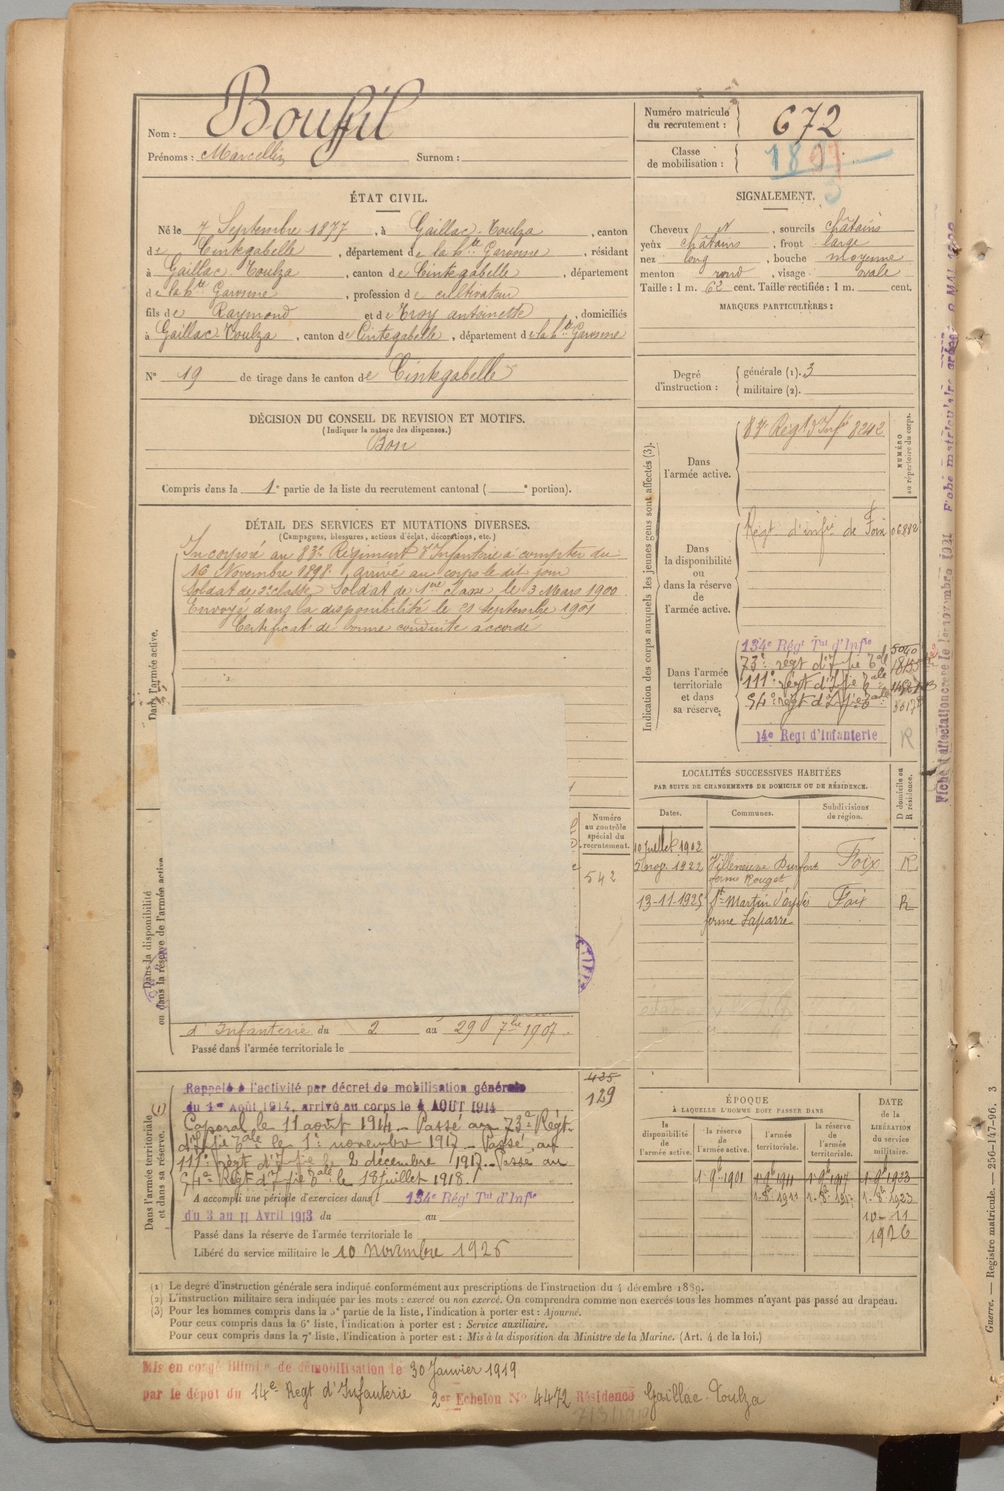 Nom : Boufil
Prénoms : Marcellin Surnom :
Numéro matricule du recrutement : 672
Classe de mobilisation : 18
ÉTAT CIVIL.
Né le 7 Septembre 1877, à Gaillac-Toulza, canton
de Cintegabelle, département de la hte Garonne, résidant
à Gaillac-Toulza, canton de Cintegabelle, département
de la hte Garonne, profession de cultivateur
fils de Raymond et de Troy antoinette, domiciliés
à Gaillac-Toulza, canton de Cintegabelle, département de la hte Garonne
N° 19 de tirage dans le canton de Cintegabelle
SIGNALEMENT.
Cheveux et, sourcils châtains
yeux châtains, front large
nez long, bouche moyenne
menton rond, visage ovale
Taille : 1 m. 62 cent. Taille rectifiée : 1 m. cent.
MARQUES PARTICULIÈRES :
Degré d'instruction :
générale (1). 3
militaire (2).
DÉCISION DU CONSEIL DE REVISION ET MOTIFS.
(Indiquer la nature des dispenses.)
Bon
Compris dans la 1e partie de la liste du recrutement cantonal ( e portion).
DÉTAIL DES SERVICES ET MUTATIONS DIVERSES.
(Campagnes, blessures, actions d'éclat, décorations, etc.)
Dans l'armée active.
Incorporé au 83e Régiment d'Infanterie à compter du
16 Novembre 1898, arrivé au corps le dit jour
Soldat de 2e classe. Soldat de 1ère classe le 3 Mars 1900
Envoyé dans la disponibilité le 21 septembre 1901
Certificat de bonne conduite accordé
Dans la disponibilité
ou dans la réserve de l'armée active
Numéro
au contrôle
spécial du
recrutement.
542
d'Infanterie du 2 au 29 7bre 1907.
Passé dans l'armée territoriale le
Dans l'armée territoriale
et dans sa réserve.
(1)
Rappelé à l'activité par décret de mobilisation générale
du 1er Août 1914, arrivé au corps le 4 AOUT 1914
Caporal le 11 août 1914 - Passé au 73e Régt
d'Infie Tale le 1er novembre 1917 - Passé au
111e régt d'Infie le 2 décembre 1917. Passé au
94e Régt d'Infie Tale le 18 juillet 1918.
A accompli une période d'exercices dans l 134e Rég' Tal d'Infie
du 3 au 11 Avril 1913 du au
Passé dans la réserve de l'armée territoriale le
Libéré du service militaire le 10 novembre 1926
435
129
Indication des corps auxquels les jeunes gens sont affectés (3).
NUMÉRO
au répertoire du corps.
Dans
l'armée active.
83e Régt d'Infie 8242
Dans
la disponibilité
ou
dans la réserve
de
l'armée active.
Régt d'infie de Foix 06882
Dans l'armée
territoriale
et dans
sa réserve.
134e Rég' Tal d'Infie 5040
73e régt d'Infie Tale
111e Régt d'Infie Tale
94e régt d'Infie Tale
14e Regt d'Infanterie R
LOCALITÉS SUCCESSIVES HABITÉES
PAR SUITE DE CHANGEMENTS DE DOMICILE OU DE RÉSIDENCE.
Dates. Communes. Subdivisions de région. D domicile ou R résidence.
10 juillet 1902
1922 Villeneuve Durfort Foix R
ferme Rouget
13-11-1925 St Martin d'oydes Foix R
ferme Laparre
ÉPOQUE
À LAQUELLE L'HOMME DOIT PASSER DANS
DATE
de la
LIBÉRATION
du service
militaire.
la disponibilité de l'armée active.
la réserve de l'armée active.
l'armée territoriale.
la réserve de l'armée territoriale.
1-9e-1901 1-9e-1911 1-9e-1917 1-9e-1923
1-8e-1911 1-8e-1917 1-8e-1923
10-11
1926
(1) Le degré d'instruction générale sera indiqué conformément aux prescriptions de l'instruction du 4 décembre 1889.
(2) L'instruction militaire sera indiquée par les mots : exercé ou non exercé. On comprendra comme non exercés tous les hommes n'ayant pas passé au drapeau.
(3) Pour les hommes compris dans la 5e partie de la liste, l'indication à porter est : Ajourné.
Pour ceux compris dans la 6e liste, l'indication à porter est : Service auxiliaire.
Pour ceux compris dans la 7e liste, l'indication à porter est : Mis à la disposition du Ministre de la Marine. (Art. 4 de la loi.)
Mis en congé illimité de démobilisation le 30 Janvier 1919
par le dépot du 14e Regt d'Infanterie 2er Echelon N° 4472 Résidence Gaillac-Toulza
Guerre. — Registre matricule. — 256-147-96. 3